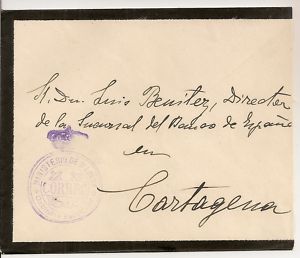 Sr. Dn. Luis Benítez, Director
de la Sucursal del Banco de España
en
Cartagena
MINISTERIO DE
CORREO